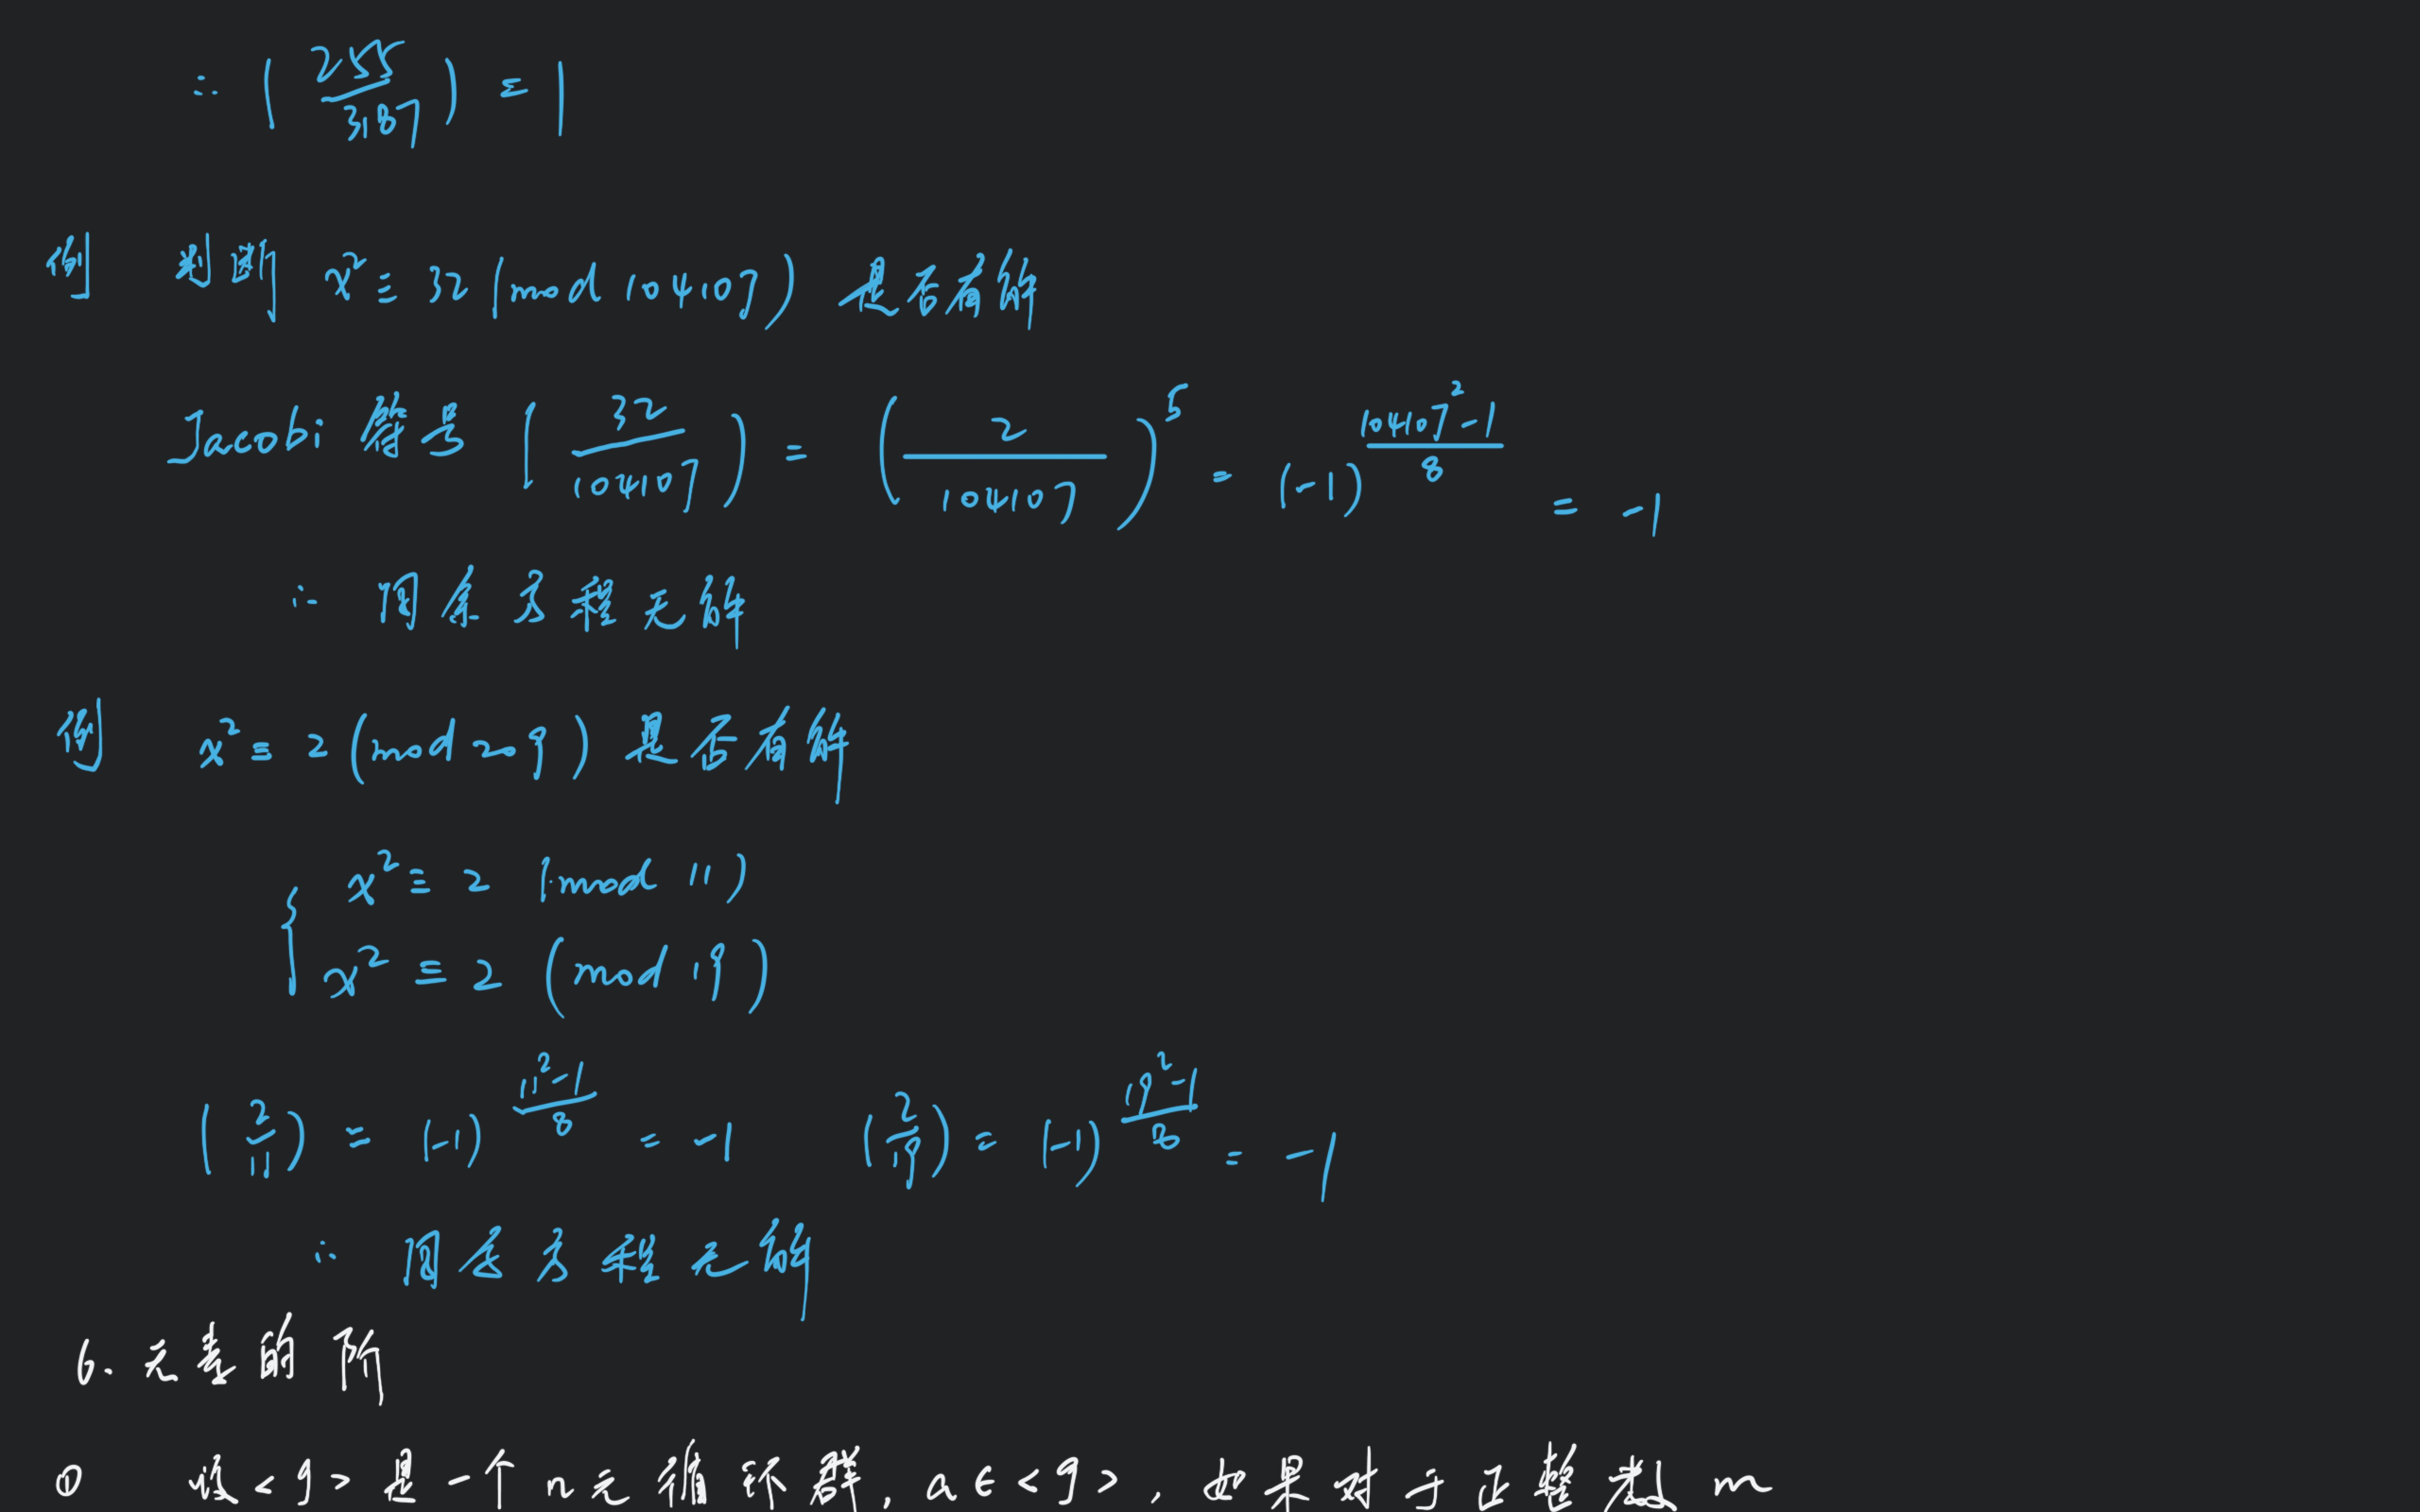 ∴ (255/3187) = 1
例 判断 x² ≡ 32 (mod 104107) 是否有解
Jacobi 符号 (32/104107) = (2/104107)⁵ = (-1)^((104107²-1)/8) = -1
∴ 同余方程无解
例 x² ≡ 2 (mod 209) 是否有解
x² ≡ 2 (mod 11)
x² ≡ 2 (mod 19)
(2/11) = (-1)^((11²-1)/8) = -1 (2/19) = (-1)^((19²-1)/8) = -1
∴ 同余方程无解
6. 元素的阶
① 设<g>是一个n元循环群, a∈<g>, 如果对于正整数m